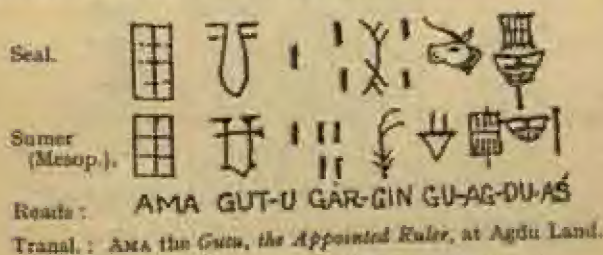 Seal.
Sumer
(Mesop.).
Reads: AMA GUT-U GÀR-GIN GU-AG-DU-AŚ
Transl.: AMA the Gutu, the Appointed Ruler, at Agdu Land.